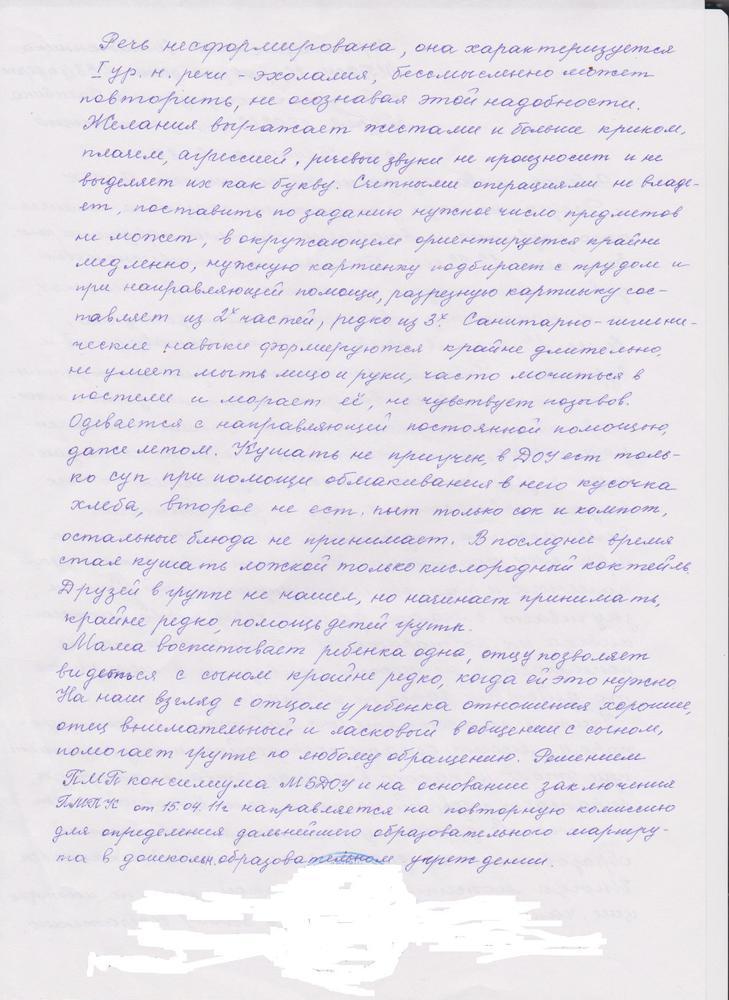 Речь несформирована, она характеризуется
I ур. н. речи - эхолалия, бессмысленно может
повторить, не осознавая этой надобности.
Желания выражает жестами и больше криком,
плачем, агрессией, речевые звуки не произносит и не
выделяет их как букву. Счетными операциями не владе-
ет, поставить по заданию нужное число предметов
не может, в окружающем ориентируется крайне
медленно, нужную картинку подбирает с трудом и
при направляющей помощи, разрезную картинку сос-
тавляет из 2х частей, редко из 3х. Санитарно-гигиени-
ческие навыки формируются крайне длительно,
не умеет мыть лицо и руки, часто мочиться в
постели и марает её, не чувствует позывов.
Одевается с направляющей постоянной помощью,
даже летом. Кушать не приучен, в ДОУ ест толь-
ко суп при помощи обмакивания в него кусочка
хлеба, второе не ест, пьет только сок и компот,
остальные блюда не принимает. В последнее время
стал кушать ложкой только кислородный коктейль.
Друзей в группе не нашел, но начинает принимать,
крайне редко, помощь детей группы.
Мама воспитывает ребенка одна, отцу позволяет
видеться с сыном крайне редко, когда ей это нужно
На наш взгляд с отцом у ребенка отношения хорошие,
отец внимательный и ласковый в общении с сыном,
помогает группе по любому обращению. Решением
ПМП консилиума МБДОУ и на основании заключения
ПМПК от 15.04.11г направляется на повторную комиссию
для определения дальнейшего образовательного маршру-
та в дошкольн. образовательном учреждении.